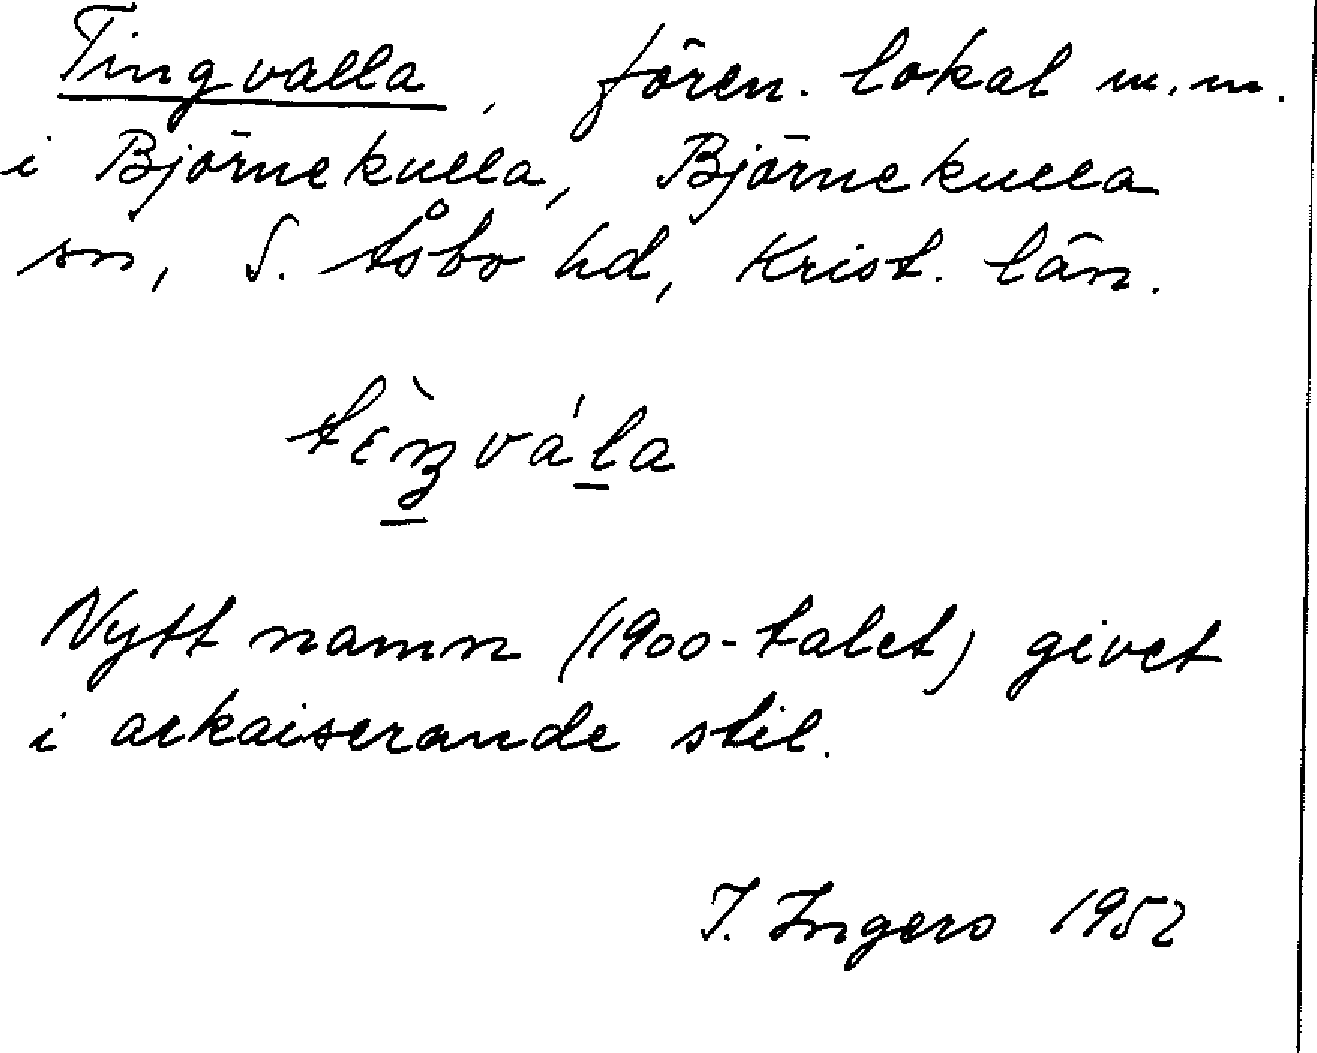 Tingvalla, fören. lokal m.m.
i Björnekulla, Björnekulla
sn, S. Åsbo hd, Krist. län.
Nytt namn (1900-talet) givet
i arkaiserande stil.
I. Ingers 1952